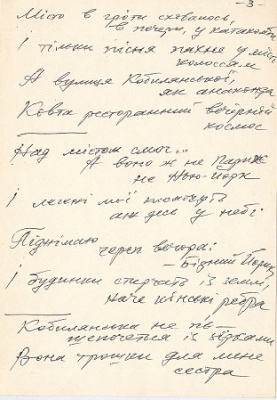 – 3 –
Місто в гроти сховалось,
в печери, у катакомби
І тільки пісня пахне у місті
колоссам
А вулиця Кобилянської,
як анаконда
Ковта ресторанний вечірній
космос
Над містом смог...
А воно ж не Париж
не Нью-Йорк
І легені мої
аж десь у небі
Піднімаю
череп
– Бідний Йорик
І будинки стирчать із землі,
наче кінські ребра
Кобилянська не
із відьмами
Вона трошки для мене
сестра